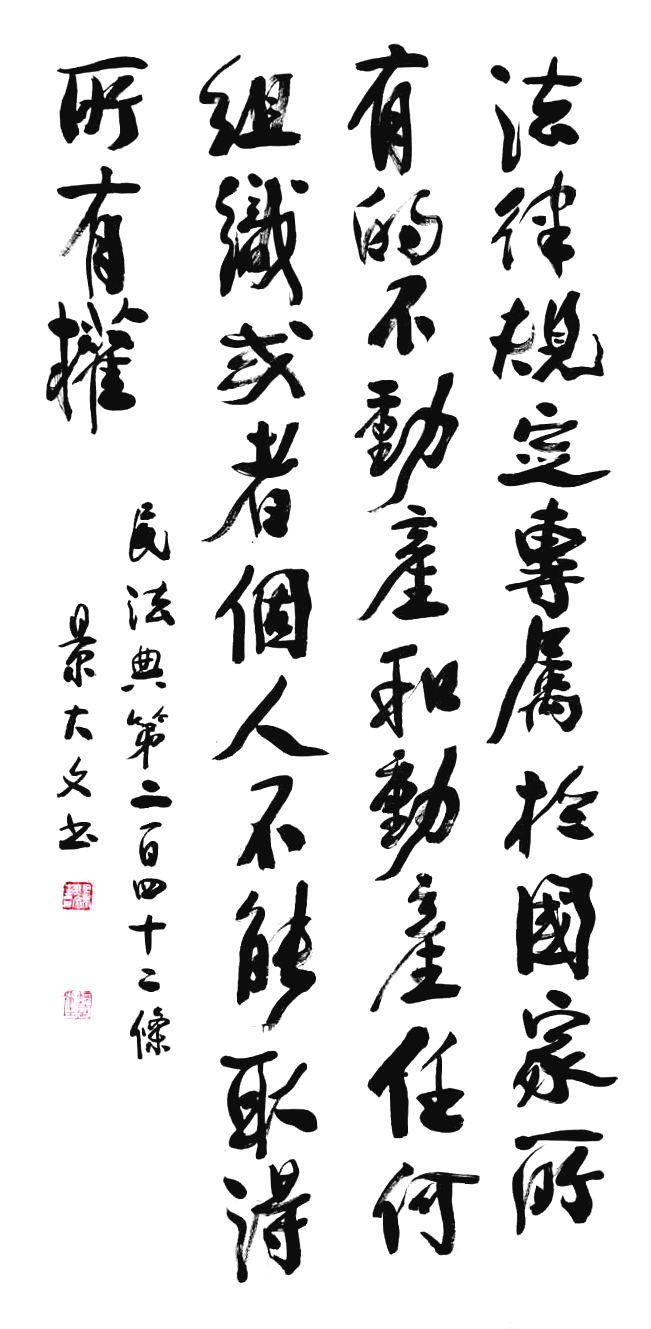 法律規定專屬於國家所
有的不動產和動產任何
組織或者個人不能取得
所有權
民法典第二百四十二條
景大文书